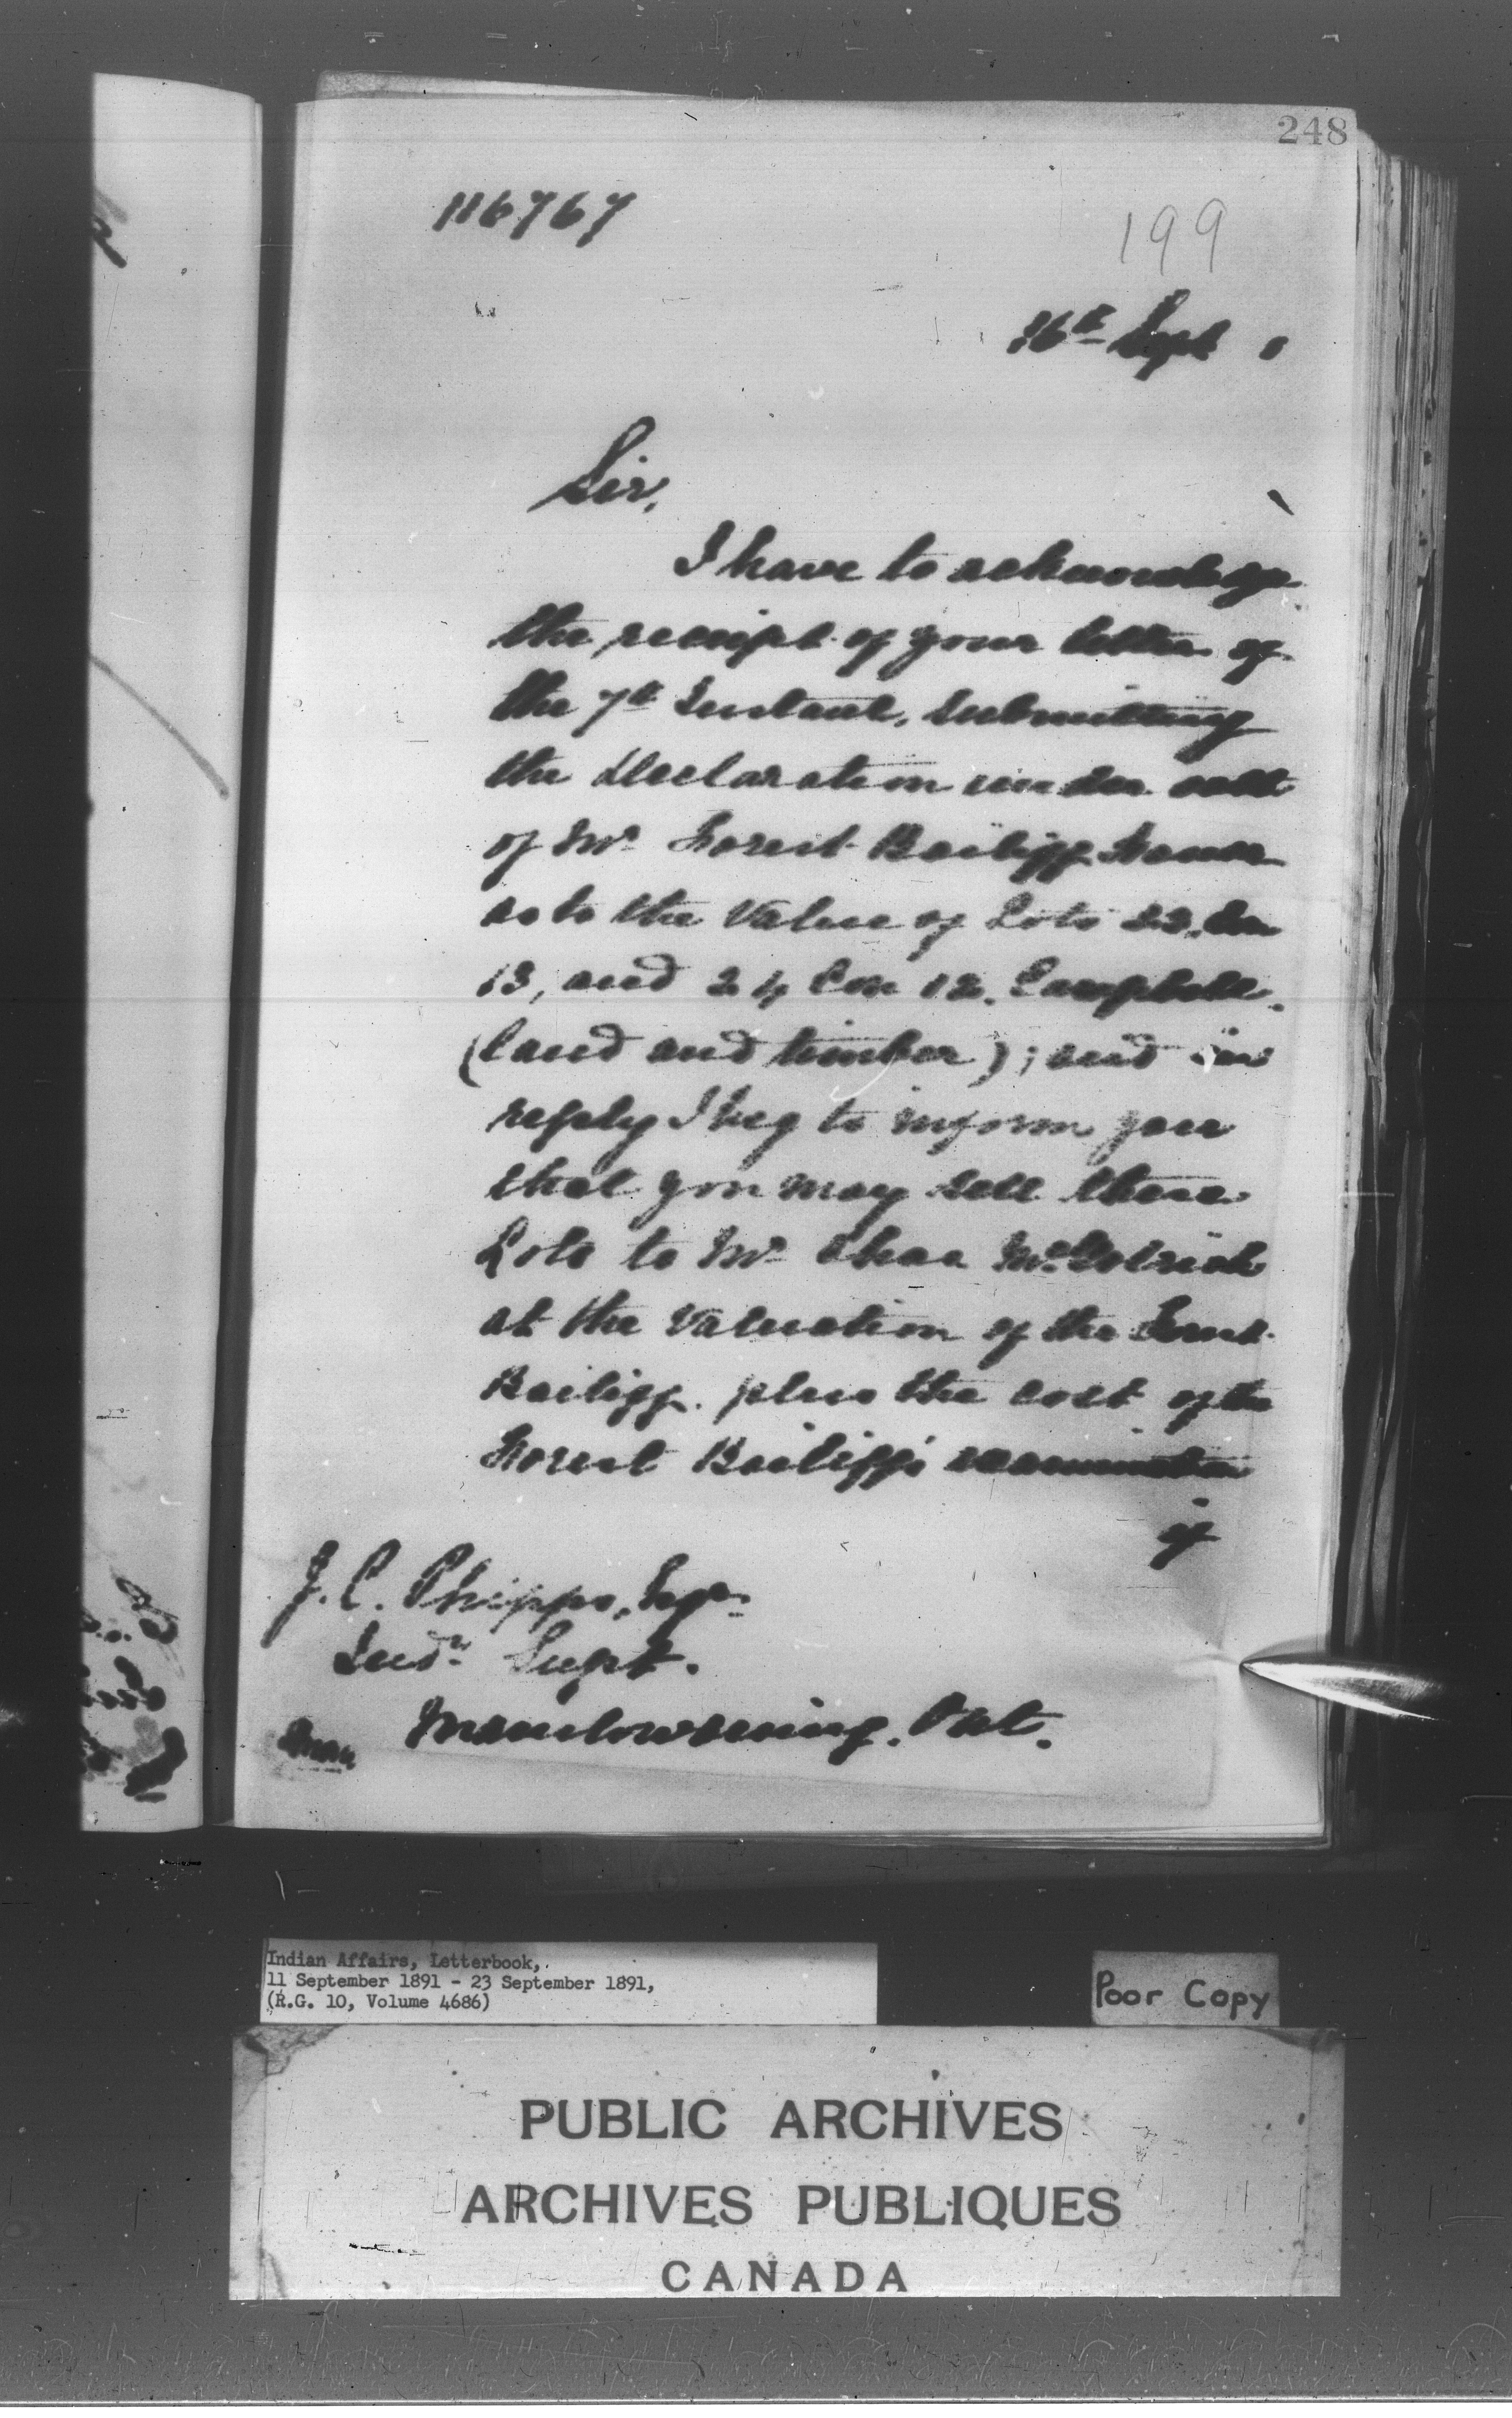 248
116767
199
16th Sept 1
Sir,
I have to acknowledge
the receipt of your letter of
the 7th Instant, submitting
the Declaration under oath
of Mr Forest Bailiff
as to the value of Lots 22, Con
13, and 24 Con 12, Campbell,
(land and timber); and in
reply I beg to inform you
that you may sell these
Lots to Mr Chas
at the valuation of the Forest
Bailiff. plus the cost of the
Forest Bailiff's examination
if
J. C. Phipps, Esqr
Indn Supt.
Manitowaning. Ont.
Indian Affairs, Letterbook,
11 September 1891 - 23 September 1891,
(R.G. 10, Volume 4686)
Poor Copy
PUBLIC ARCHIVES
ARCHIVES PUBLIQUES
CANADA